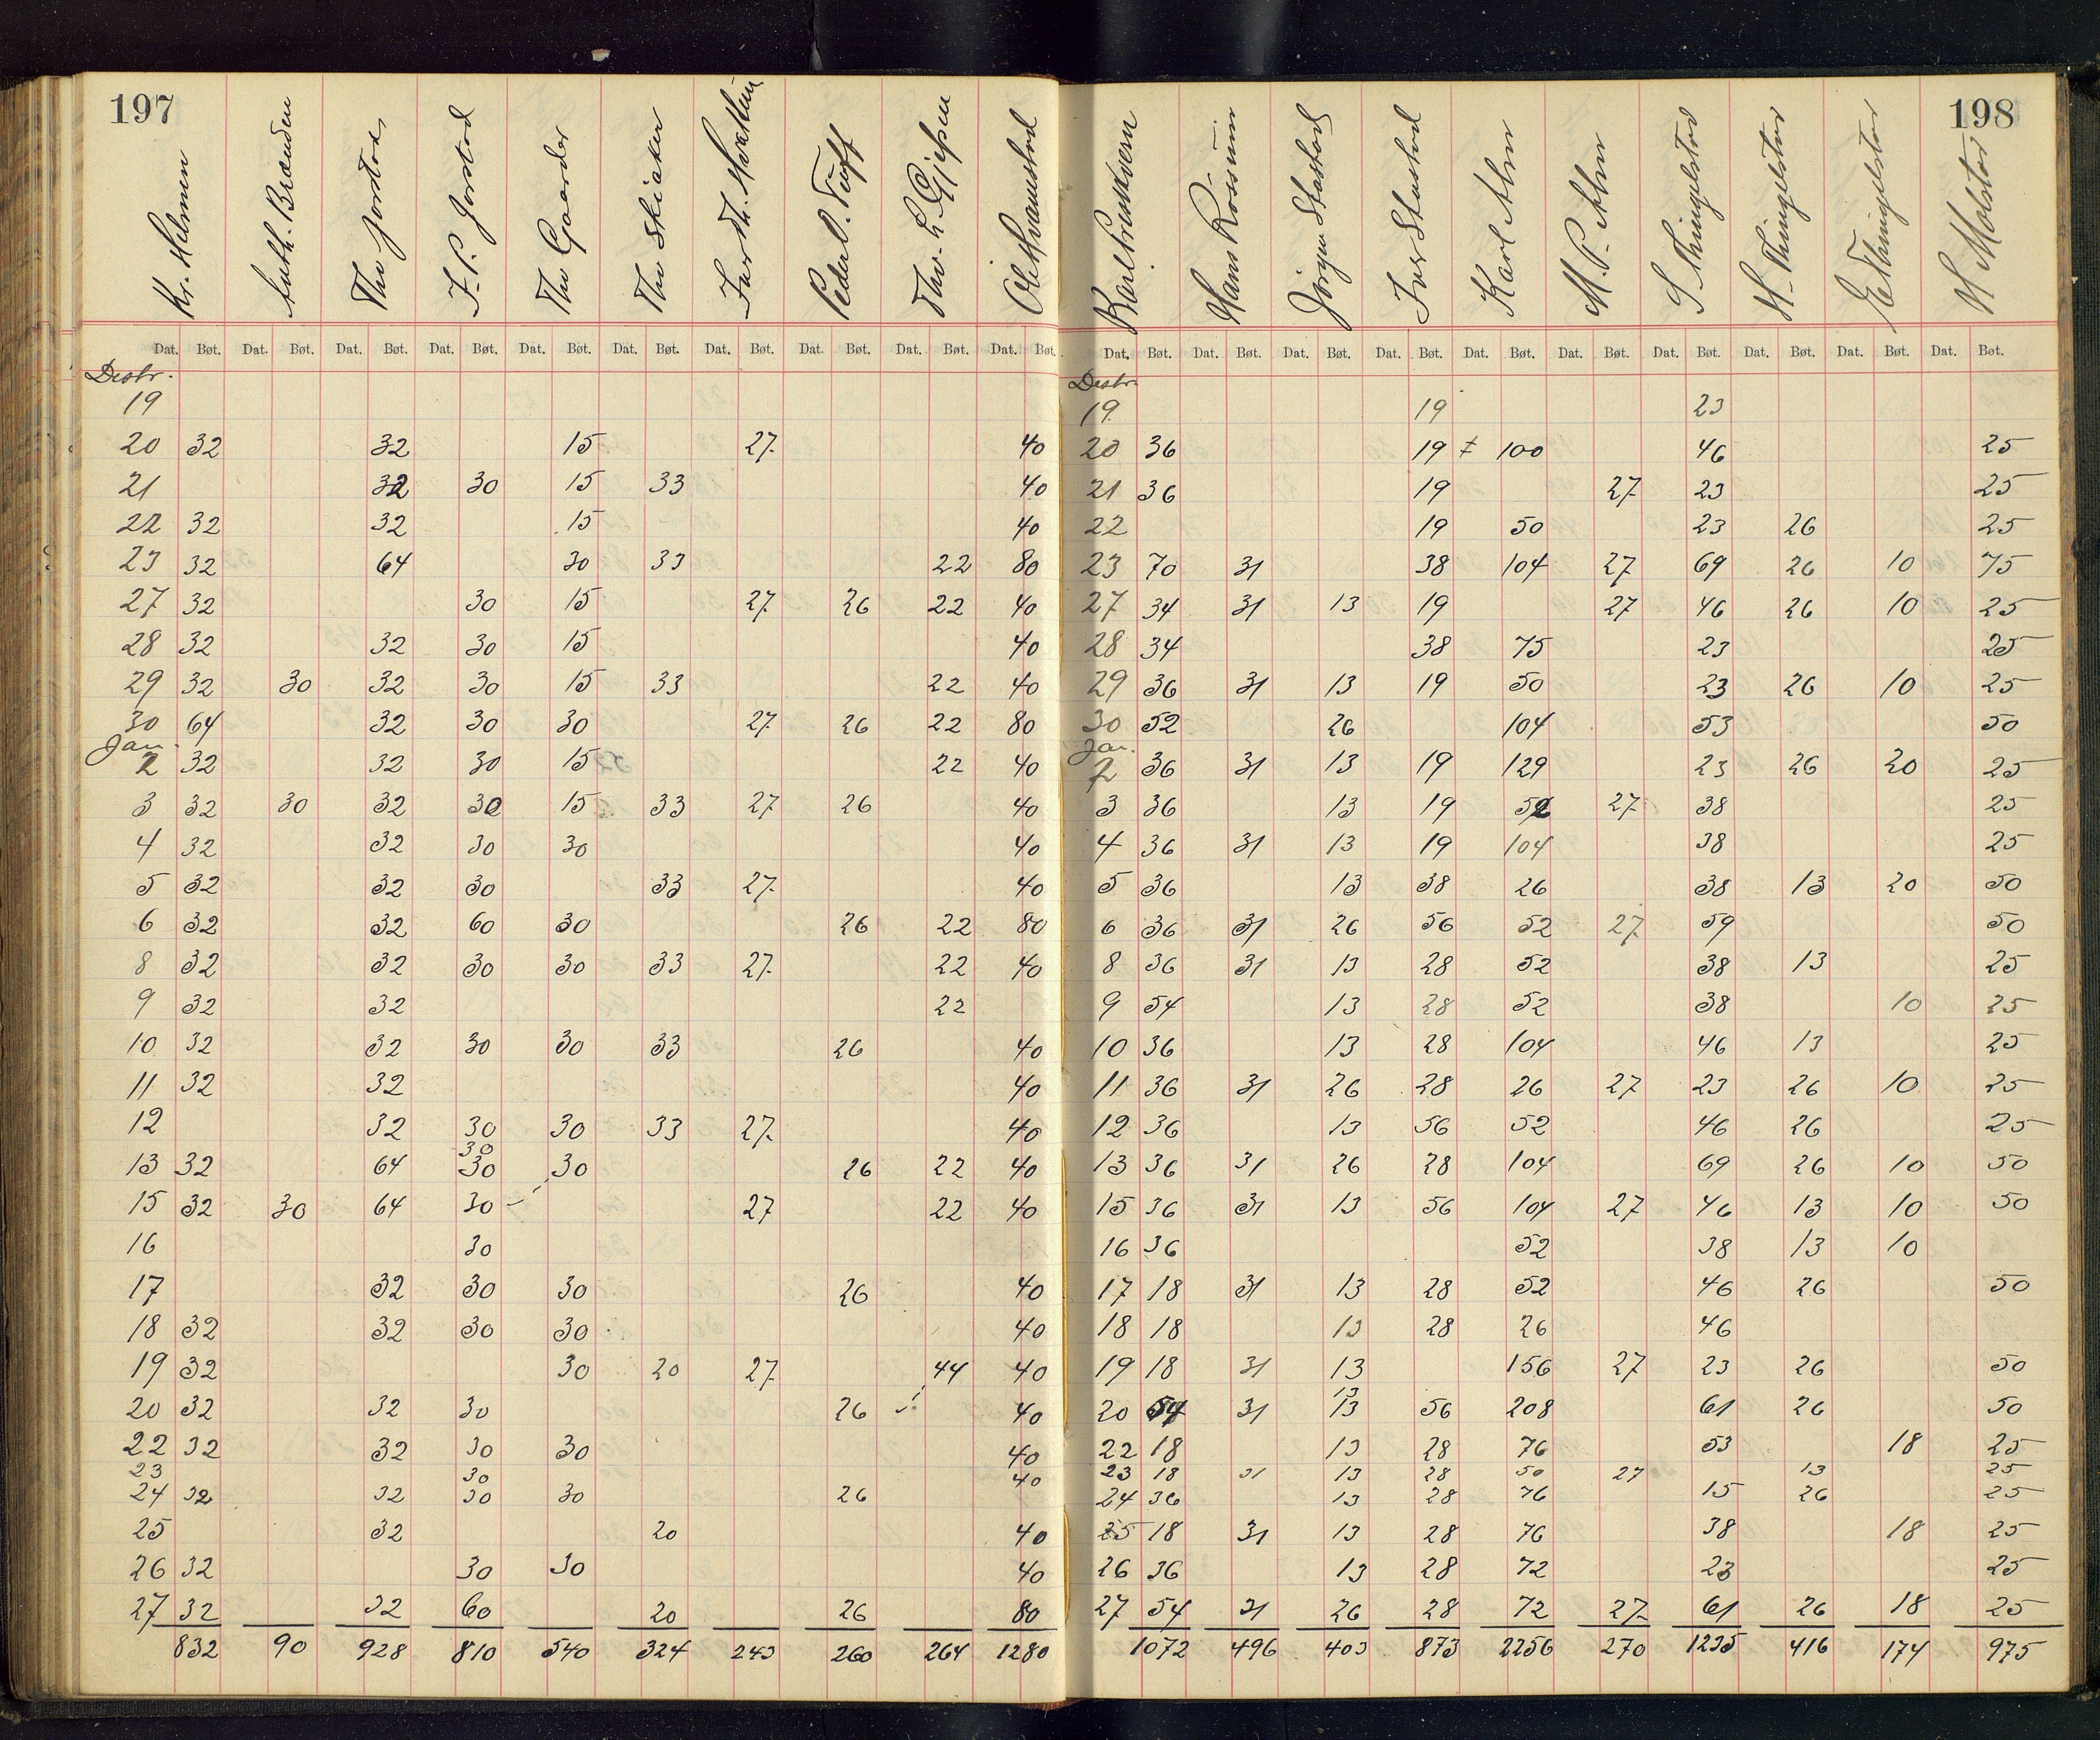 197
Kr. Helmen Th. Jorstad J. P. Jorstad Th Gaarder Th Skiaker Peder O. Tufft
Dat. Bøt. Dat. Bøt. Dat. Bøt. Dat. Bøt. Dat. Bøt. Dat. Bøt. Dat. Bøt. Dat. Bøt. Dat. Bøt. Dat. Bøt.
Desbr.
19
20 32 32 15 27 40
21 32 30 15 33 40
22 32 32 15 40
23 32 64 30 33 22 80
27 32 30 15 27 26 22 40
28 32 32 30 15 40
29 32 30 32 30 15 33 22 40
30 64 32 30 30 27 26 22 80
Jan.
2 32 32 30 15 22 40
3 32 30 32 30 15 33 27 26 40
4 32 32 30 30 40
5 32 32 30 33 27 40
6 32 32 60 30 26 22 80
8 32 32 30 30 33 27 22 40
9 32 32 22
10 32 32 30 30 33 26 40
11 32 32 40
12 32 30 30 33 27 40
30
13 32 64 30 30 26 22 40
15 32 30 64 30 27 22 40
16 30
17 32 30 30 26 40
18 32 32 30 30 40
19 32 30 20 27 44 40
20 32 32 30 26 40
22 32 32 30 30 40
23 30 40
24 32 32 30 30 26
25 32 20 40
26 32 30 30 40
27 32 32 60 20 26 80
832 90 928 810 540 324 243 260 264 1280
198
Hans Rossum Jørgen Stastad Iver Stastad Karl Alm M. P. Alm S Thingelstad H. Thingelstad E Thingelstad H Molstad
Dat. Bøt. Dat. Bøt. Dat. Bøt. Dat. Bøt. Dat. Bøt. Dat. Bøt. Dat. Bøt. Dat. Bøt. Dat. Bøt. Dat. Bøt.
Desbr.
19 19 23
20 36 19 ‡ 100 46 25
21 36 19 27 23 25
22 19 50 23 26 25
23 70 31 38 104 27 69 26 10 75
27 34 31 13 19 27 46 26 10 25
28 34 38 75 23 25
29 36 31 13 19 50 23 26 10 25
30 52 26 104 53 50
Jan.
2 36 31 13 19 129 23 26 20 25
3 36 13 19 52 27 38 25
4 36 31 13 19 104 38 25
5 36 13 38 26 38 13 20 50
6 36 31 26 56 52 27 59 50
8 36 31 13 28 52 38 13 25
9 54 13 28 52 38 10 25
10 36 13 28 104 46 13 25
11 36 31 26 28 26 27 23 26 10 25
12 36 13 56 52 46 26 25
13 36 31 26 28 104 69 26 10 50
15 36 31 13 56 104 27 46 13 10 50
16 36 52 38 13 10
17 18 31 13 28 52 46 26 50
18 18 13 28 26 46
19 18 31 13 156 27 23 26 50
13
20 54 31 13 56 208 61 26 50
22 18 13 28 76 53 18 25
23 18 31 13 28 50 27 13 25
24 36 13 28 76 15 26 25
25 18 31 13 28 76 38 18 25
26 36 13 28 72 23 25
27 54 31 26 28 72 27 61 26 18 25
1072 496 403 873 2256 270 1235 416 174 975